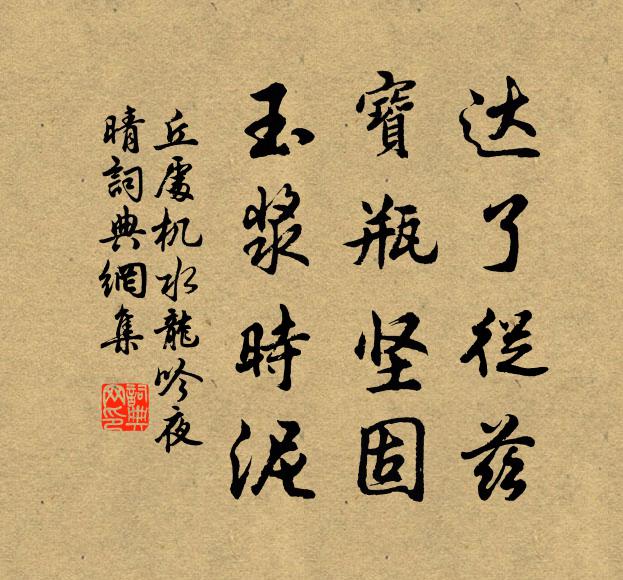 达了從茲
寶瓶坚固
玉漿時泥
丘處机水龍吟夜
晴詞典網集
詞典网印